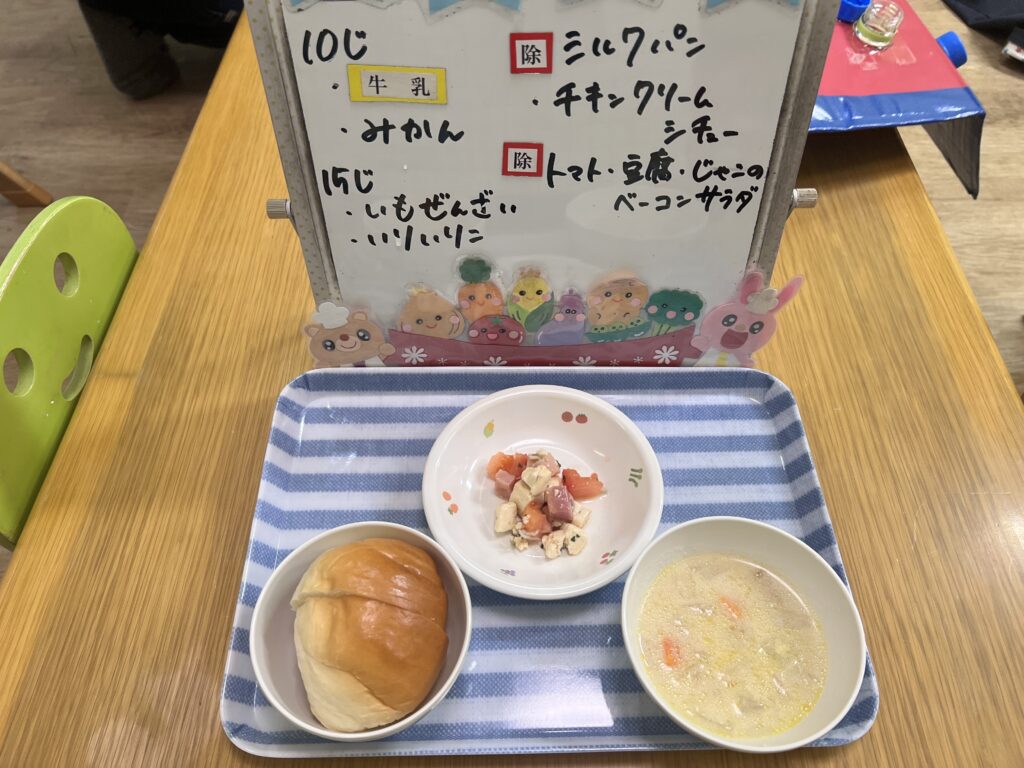 10じ
・牛乳
・みかん
15じ
・いもぜんざい
・いりいりこ
除 ミルクパン
・チキンクリーム
シチュー
除 トマト・豆腐・じゃこの
ベーコンサラダ